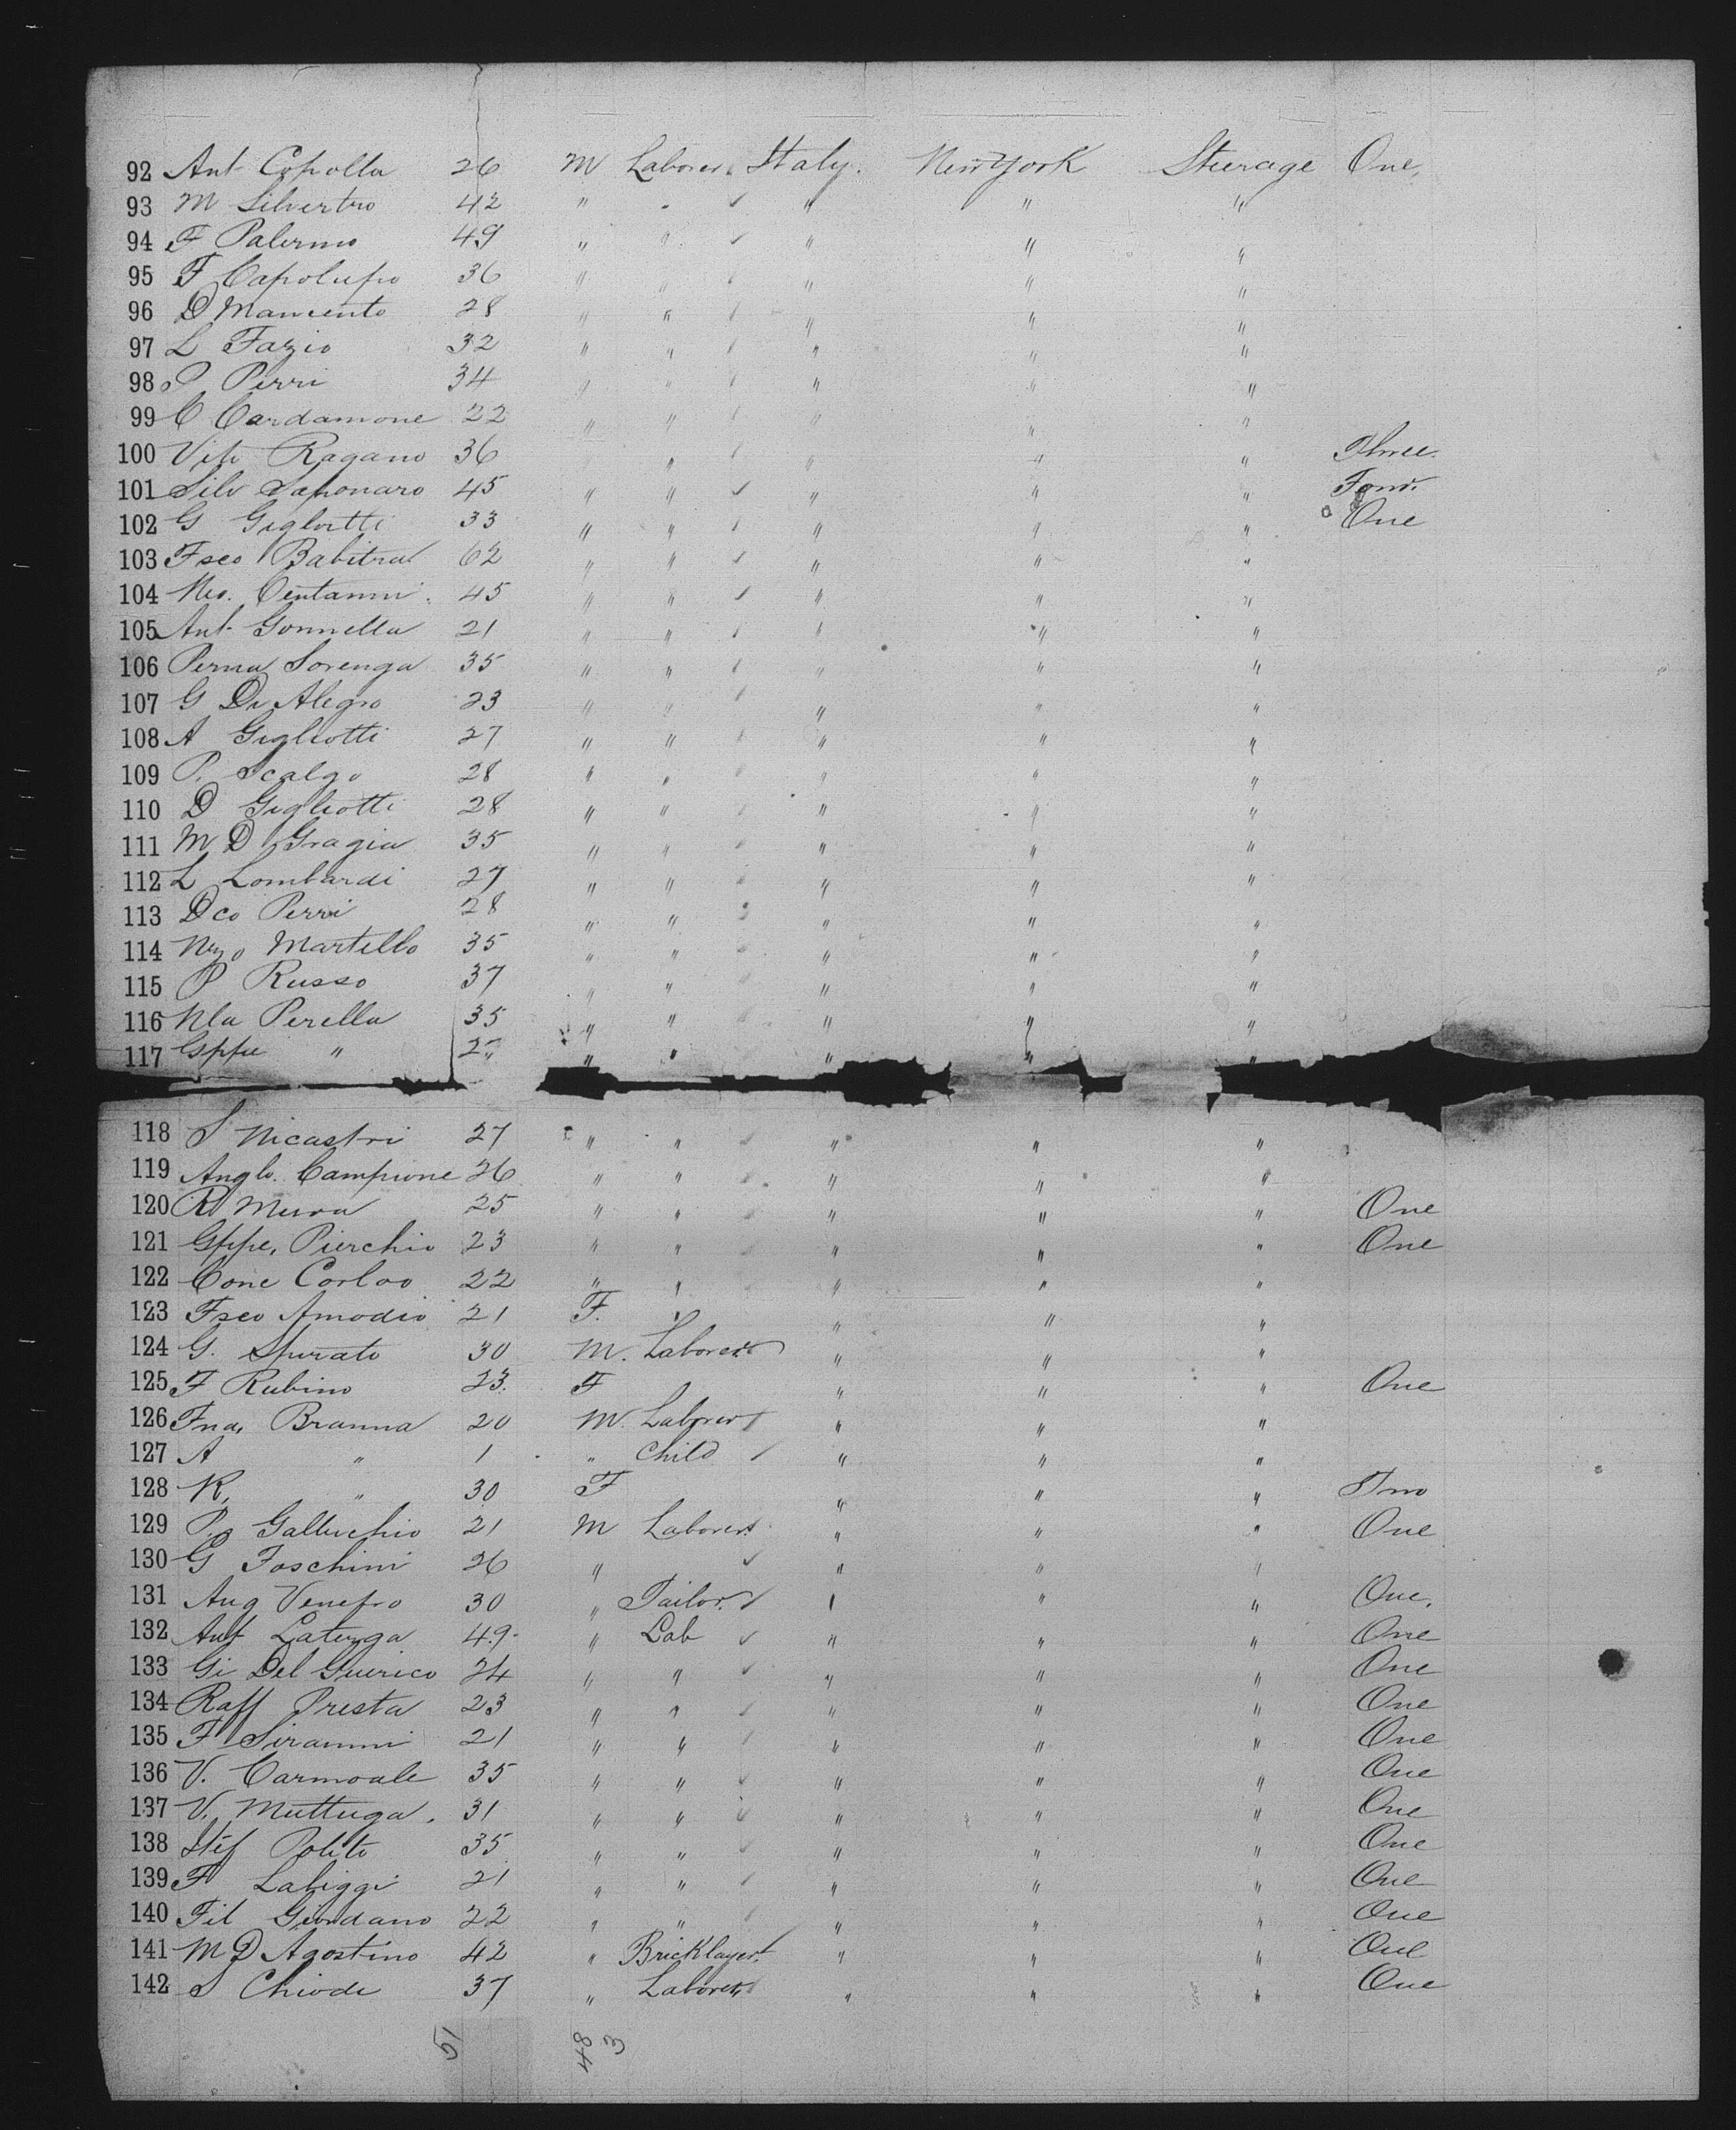 92 Ant Copolla 26 M Laborer Italy. New York Steerage One
93 M Silvertro 42 " " ✓ " " "
94 F Palermo 49 " " ✓ " " "
95 F Capolupo 36 " " ✓ " " "
96 D Mancento 28 " " ✓ " " "
97 L Fazio 32 " " ✓ " " "
98 P Perri 34 " " ✓ " " "
99 C Cardamone 22 " " ✓ " " "
100 Vito Ragano 36 " " ✓ " " " Three
101 Silv Saponaro 45 " " ✓ " " " Four
102 G Gigliotti 33 " " ✓ " " " One
103 Fsco Babitral 62 " " ✓ " " "
104 Centanni 45 " " ✓ " " "
105 Ant Gonnella 21 " " ✓ " " "
106 Perna Sorenga 35 " " ✓ " " "
107 G Di Alegro 23 " " ✓ " " "
108 A Gigliotti 27 " " ✓ " " "
109 P. Scalgo 28 " " ✓ " " "
110 D Gigliotti 28 " " ✓ " " "
111 M D Gragia 35 " " ✓ " " "
112 L Lombardi 27 " " ✓ " " "
113 Dco Perri 28 " " ✓ " " "
114 Nzo Martello 35 " " ✓ " " "
115 P Russo 37 " " ✓ " " "
116 Nla Perella 35 " " ✓ " " "
117 Gppe " 27 " " " " "
118 S Nicastri 27 " " ✓ " " "
119 Anglo. Campione 26 " " ✓ " " "
120 R Mura 25 " " ✓ " " " One
121 Gppe. Pierchio 23 " " ✓ " " " One
122 Conc Corloo 22 " " ✓ " " "
123 Fsco Amodio 21 F. " " " "
124 G. Spirato 30 M. Laborer " " "
125 F Rubino 23. F " " " One
126 Fna. Branna 20 M. Laborer " " "
127 A " 1 " Child ✓ " " "
128 K, " 30 F " " " Two
129 P. Galluchio 21 M Laborer " " " One
130 G Foschini 26 " ✓ " " "
131 Ang Venefro 30 " Tailor. ✓ " " " One.
132 Ant Latenga 49 " Lab ✓ " " " One
133 Gi Del Guerico 24 " " ✓ " " " One
134 Raff Presta 23 " " ✓ " " " One
135 F Siranni 21 " " ✓ " " " One
136 V. Carmoale 35 " " ✓ " " " One
137 V. Muttuga. 31 " " ✓ " " " One
138 Stef Polito 35 " " ✓ " " " One
139 F Labiggi 21 " " ✓ " " " One
140 Fil Giordano 22 " " ✓ " " " One
141 M D Agostino 42 " Bricklayer " " " One
142 S Chiodi 37 " Laborer " " " One
51 48 3